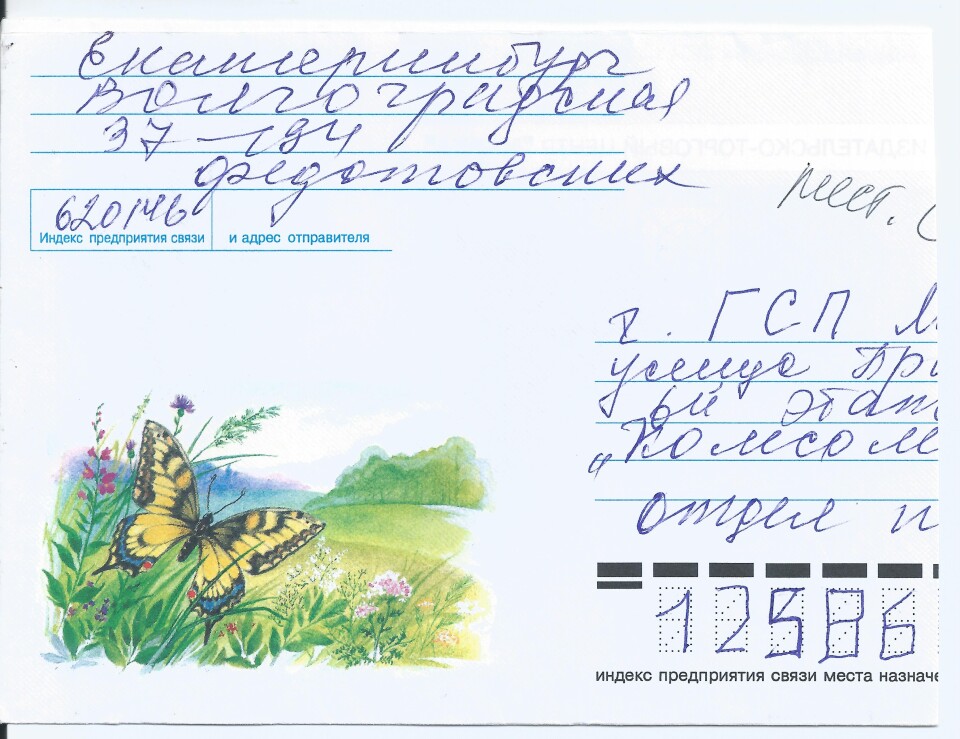 Екатеринбург
Волгоградская
37-194
Федотовских
620146
Индекс предприятия связи и адрес отправителя
г. ГСП М
улица Пр
6й этаж
"Комсом
отдел п
индекс предприятия связи места назначе